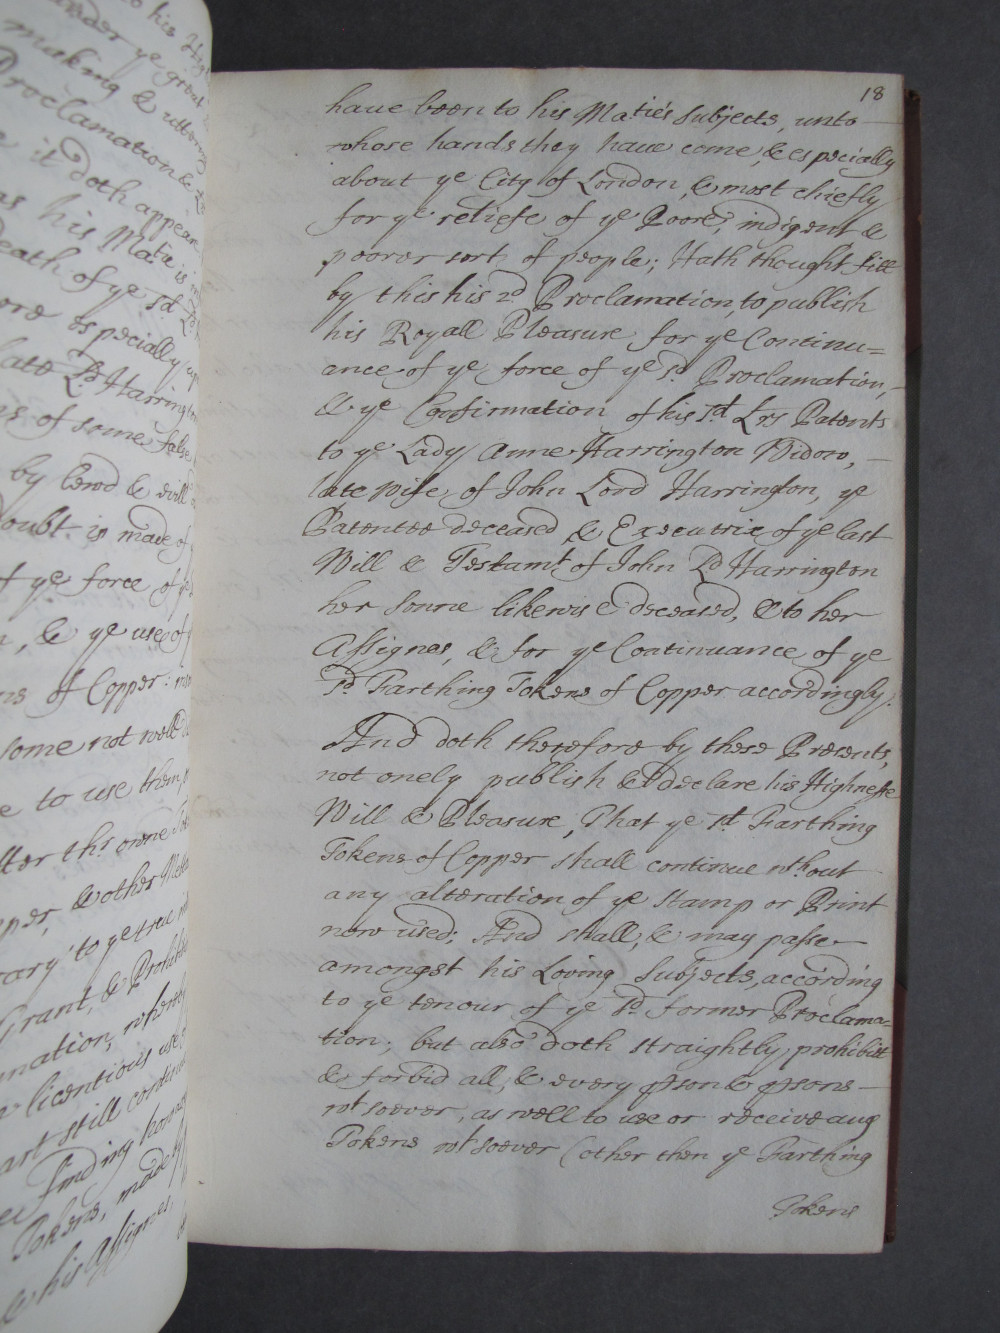 to his High
under ye great
making & uttering
Proclamation &
it doth appeare
as his Matie is
Death of ye sd Ld
ore especially
late Ld Harrington
ns of some false
by lewd & evill
doubt is made of
of ye force of ye
n, & ye use of
ns of Copper:
some not well
e to use them,
tter thr owne
pper, & other
rary to ye true
Grant, & Prohibi
mation, whereby
licentious use
art still continue
finding how
Tokens, made
& his Assignes,
18
have been to his Maties Subjects, unto
whose hands they have come, & especially
about ye City of London, & most chiefly
for ye reliefe of ye Poore, indigent &
poorer sort of people; Hath thought fitt
by this his 2d Proclamation, to publish
his Royall Pleasure for ye Continu=
ance of ye force of ye sd Proclamation,
& ye Confirmation of his sd Lrs Patents
to ye Lady Anne Harrington Widow,
late wife of John Lord Harrington, ye
Patentee deceased & Executrix of ye last
Will & Testamt of John Ld Harrington
her Sonne likewise deceased, & to her
Assignes, & for ye Continuance of ye
sd Farthing Tokens of Copper accordingly.
And doth therefore by these Presents,
not onely publish & declare his Highnesse
Will & Pleasure, That ye sd Farthing
Tokens of Copper shall continue wthout
any alteration of ye Stamp or Print
now used; And shall, & may passe
amongst his Loving Subjects, according
to ye tenour of ye sd former Proclama=
tion; but also doth straightly prohibitt
& forbid all, & every prson & prsons
wtsoever, as well to use or receive any
Tokens wtsoever (other then ye Farthing
Tokens